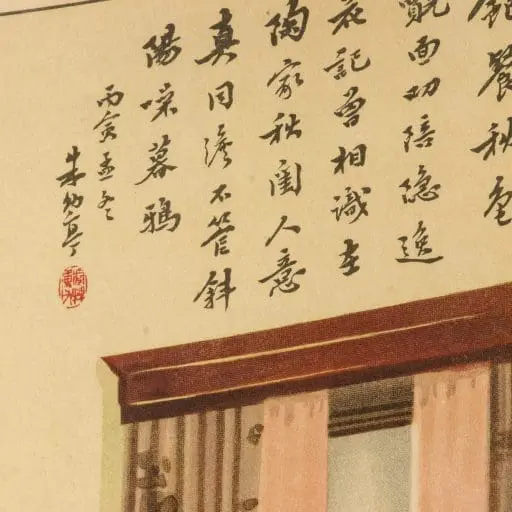 餐秋色
面陪隐逸
記曾相識在
陶家秋圃人意
真同澹不管斜
陽噪暮鴉
丙寅孟冬
朱